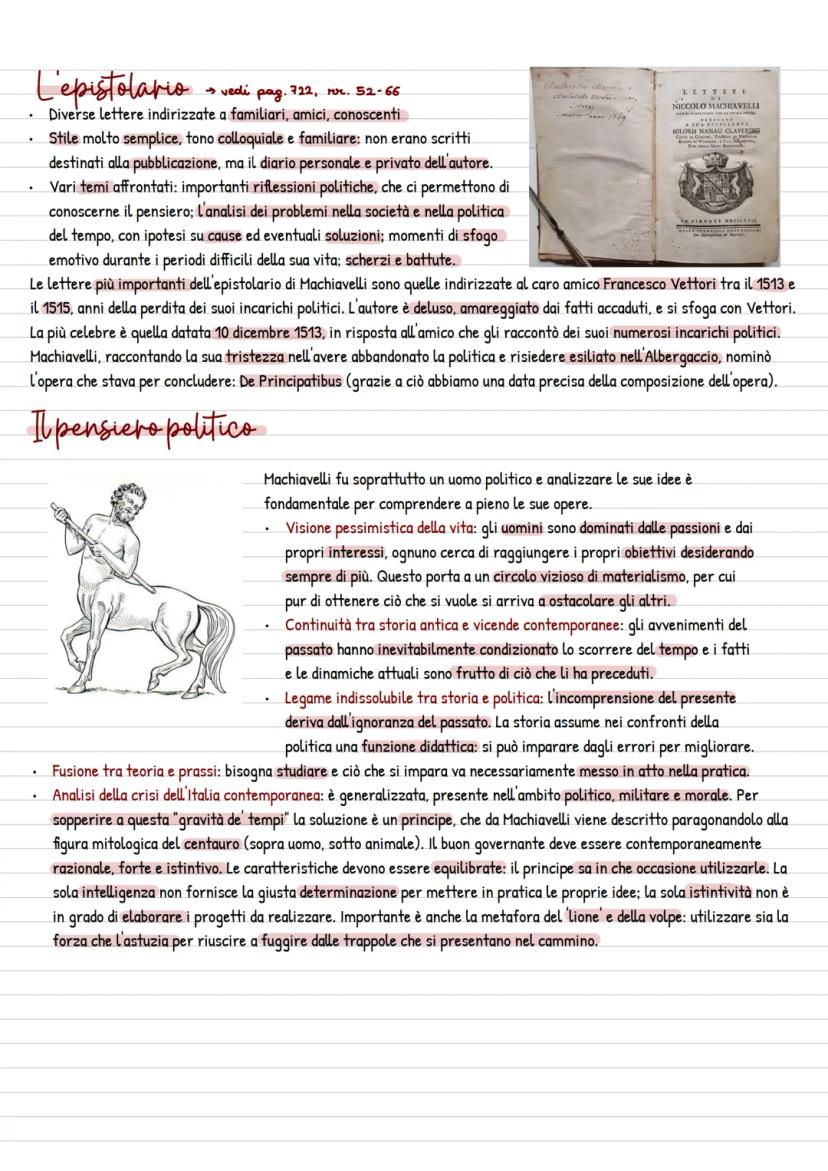 L'epistolario → vedi pag. 722, rr. 52-66
• Diverse lettere indirizzate a familiari, amici, conoscenti
• Stile molto semplice, tono colloquiale e familiare: non erano scritti
destinati alla pubblicazione, ma il diario personale e privato dell'autore.
• Vari temi affrontati: importanti riflessioni politiche, che ci permettono di
conoscerne il pensiero; l'analisi dei problemi nella società e nella politica
del tempo, con ipotesi su cause ed eventuali soluzioni; momenti di sfogo
emotivo durante i periodi difficili della sua vita; scherzi e battute.
LETTERE
DI
NICCOLO MACHIAVELLI
A SUA ECCELLENZA
MILORD NASSAU CLAVERING
IN FIRENZE MDCCLXVII.
Le lettere più importanti dell'epistolario di Machiavelli sono quelle indirizzate al caro amico Francesco Vettori tra il 1513 e
il 1515, anni della perdita dei suoi incarichi politici. L'autore è deluso, amareggiato dai fatti accaduti, e si sfoga con Vettori.
La più celebre è quella datata 10 dicembre 1513, in risposta all'amico che gli raccontò dei suoi numerosi incarichi politici.
Machiavelli, raccontando la sua tristezza nell'avere abbandonato la politica e risiedere esiliato nell'Albergaccio, nominò
l'opera che stava per concludere: De Principatibus (grazie a ciò abbiamo una data precisa della composizione dell'opera).
Il pensiero politico
Machiavelli fu soprattutto un uomo politico e analizzare le sue idee è
fondamentale per comprendere a pieno le sue opere.
• Visione pessimistica della vita: gli uomini sono dominati dalle passioni e dai
propri interessi, ognuno cerca di raggiungere i propri obiettivi desiderando
sempre di più. Questo porta a un circolo vizioso di materialismo, per cui
pur di ottenere ciò che si vuole si arriva a ostacolare gli altri.
• Continuità tra storia antica e vicende contemporanee: gli avvenimenti del
passato hanno inevitabilmente condizionato lo scorrere del tempo e i fatti
e le dinamiche attuali sono frutto di ciò che li ha preceduti.
• Legame indissolubile tra storia e politica: l'incomprensione del presente
deriva dall'ignoranza del passato. La storia assume nei confronti della
politica una funzione didattica: si può imparare dagli errori per migliorare.
• Fusione tra teoria e prassi: bisogna studiare e ciò che si impara va necessariamente messo in atto nella pratica.
• Analisi della crisi dell'Italia contemporanea: è generalizzata, presente nell'ambito politico, militare e morale. Per
sopperire a questa "gravità de' tempi" la soluzione è un principe, che da Machiavelli viene descritto paragonandolo alla
figura mitologica del centauro (sopra uomo, sotto animale). Il buon governante deve essere contemporaneamente
razionale, forte e istintivo. Le caratteristiche devono essere equilibrate: il principe sa in che occasione utilizzarle. La
sola intelligenza non fornisce la giusta determinazione per mettere in pratica le proprie idee; la sola istintività non è
in grado di elaborare i progetti da realizzare. Importante è anche la metafora del 'lione' e della volpe: utilizzare sia la
forza che l'astuzia per riuscire a fuggire dalle trappole che si presentano nel cammino.